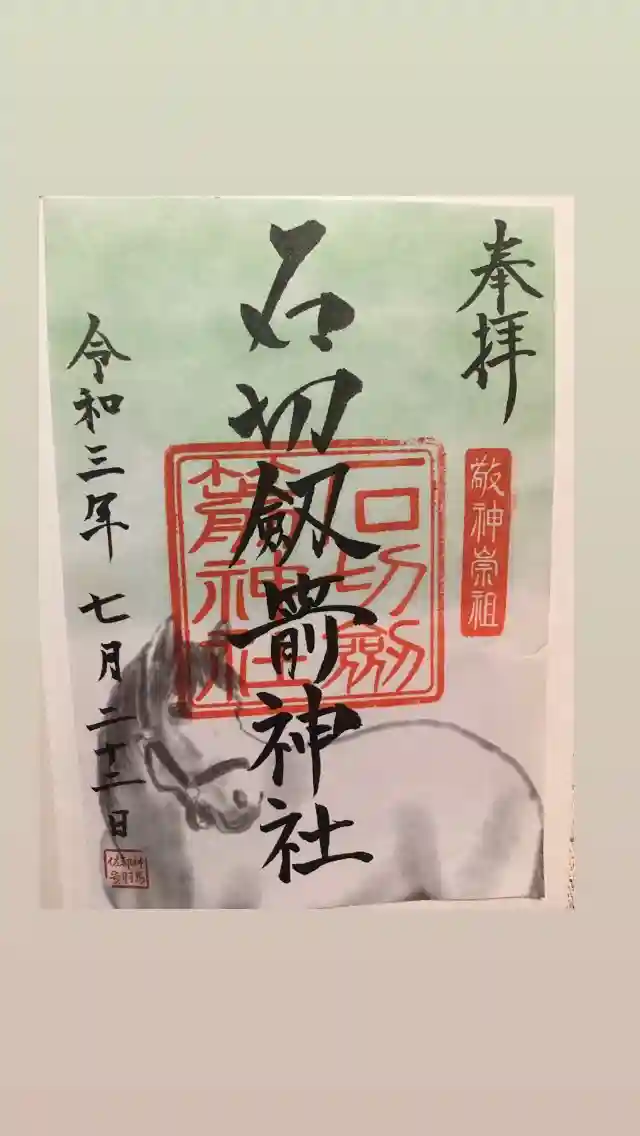 奉拝
敬神崇祖
石切劔箭神社
石切劔
箭神社
令和三年 七月二十二日